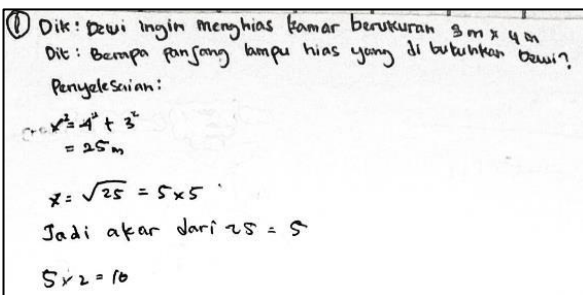 ① Dik: Dewi ingin menghias kamar berukuran 3 m x 4 m
Dit: Berapa panjang lampu hias yang di butuhkan Dewi?
Penyelesaian:
x² = 4² + 3²
= 25 m
x = √25 = 5 x 5
Jadi akar dari 25 = 5
5 x 2 = 10